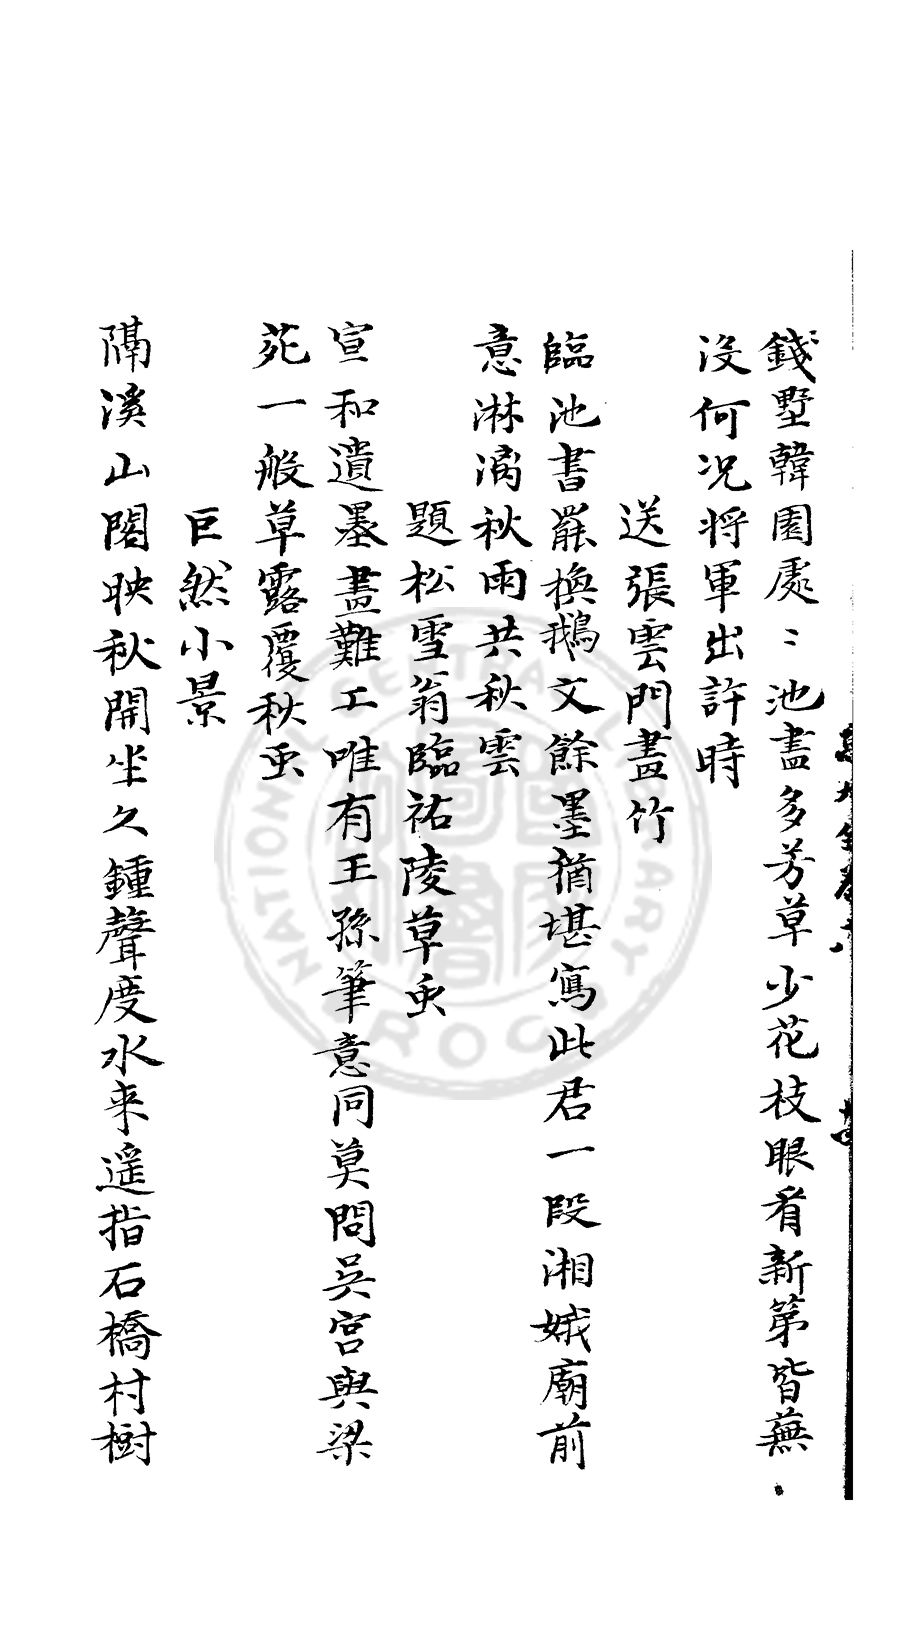 錢墅韓園處〻池盡多芳草少花枝眼看新第皆蕪
沒何況將軍出許時
送張雲門畫竹
臨池書罷換鵝文餘墨猶堪寫此君一段湘娥廟前
意淋漓秋雨共秋雲
題松雪翁臨祐陵草虫
宣和遺墨畫難工唯有王孫筆意同莫問吳宮與梁
苑一般草露覆秋虫
巨然小景
隔溪山閣映秋開坐久鍾聲度水来遥指石橋村樹
NATIONAL CENTRAL LIBRARY
R.O.C.